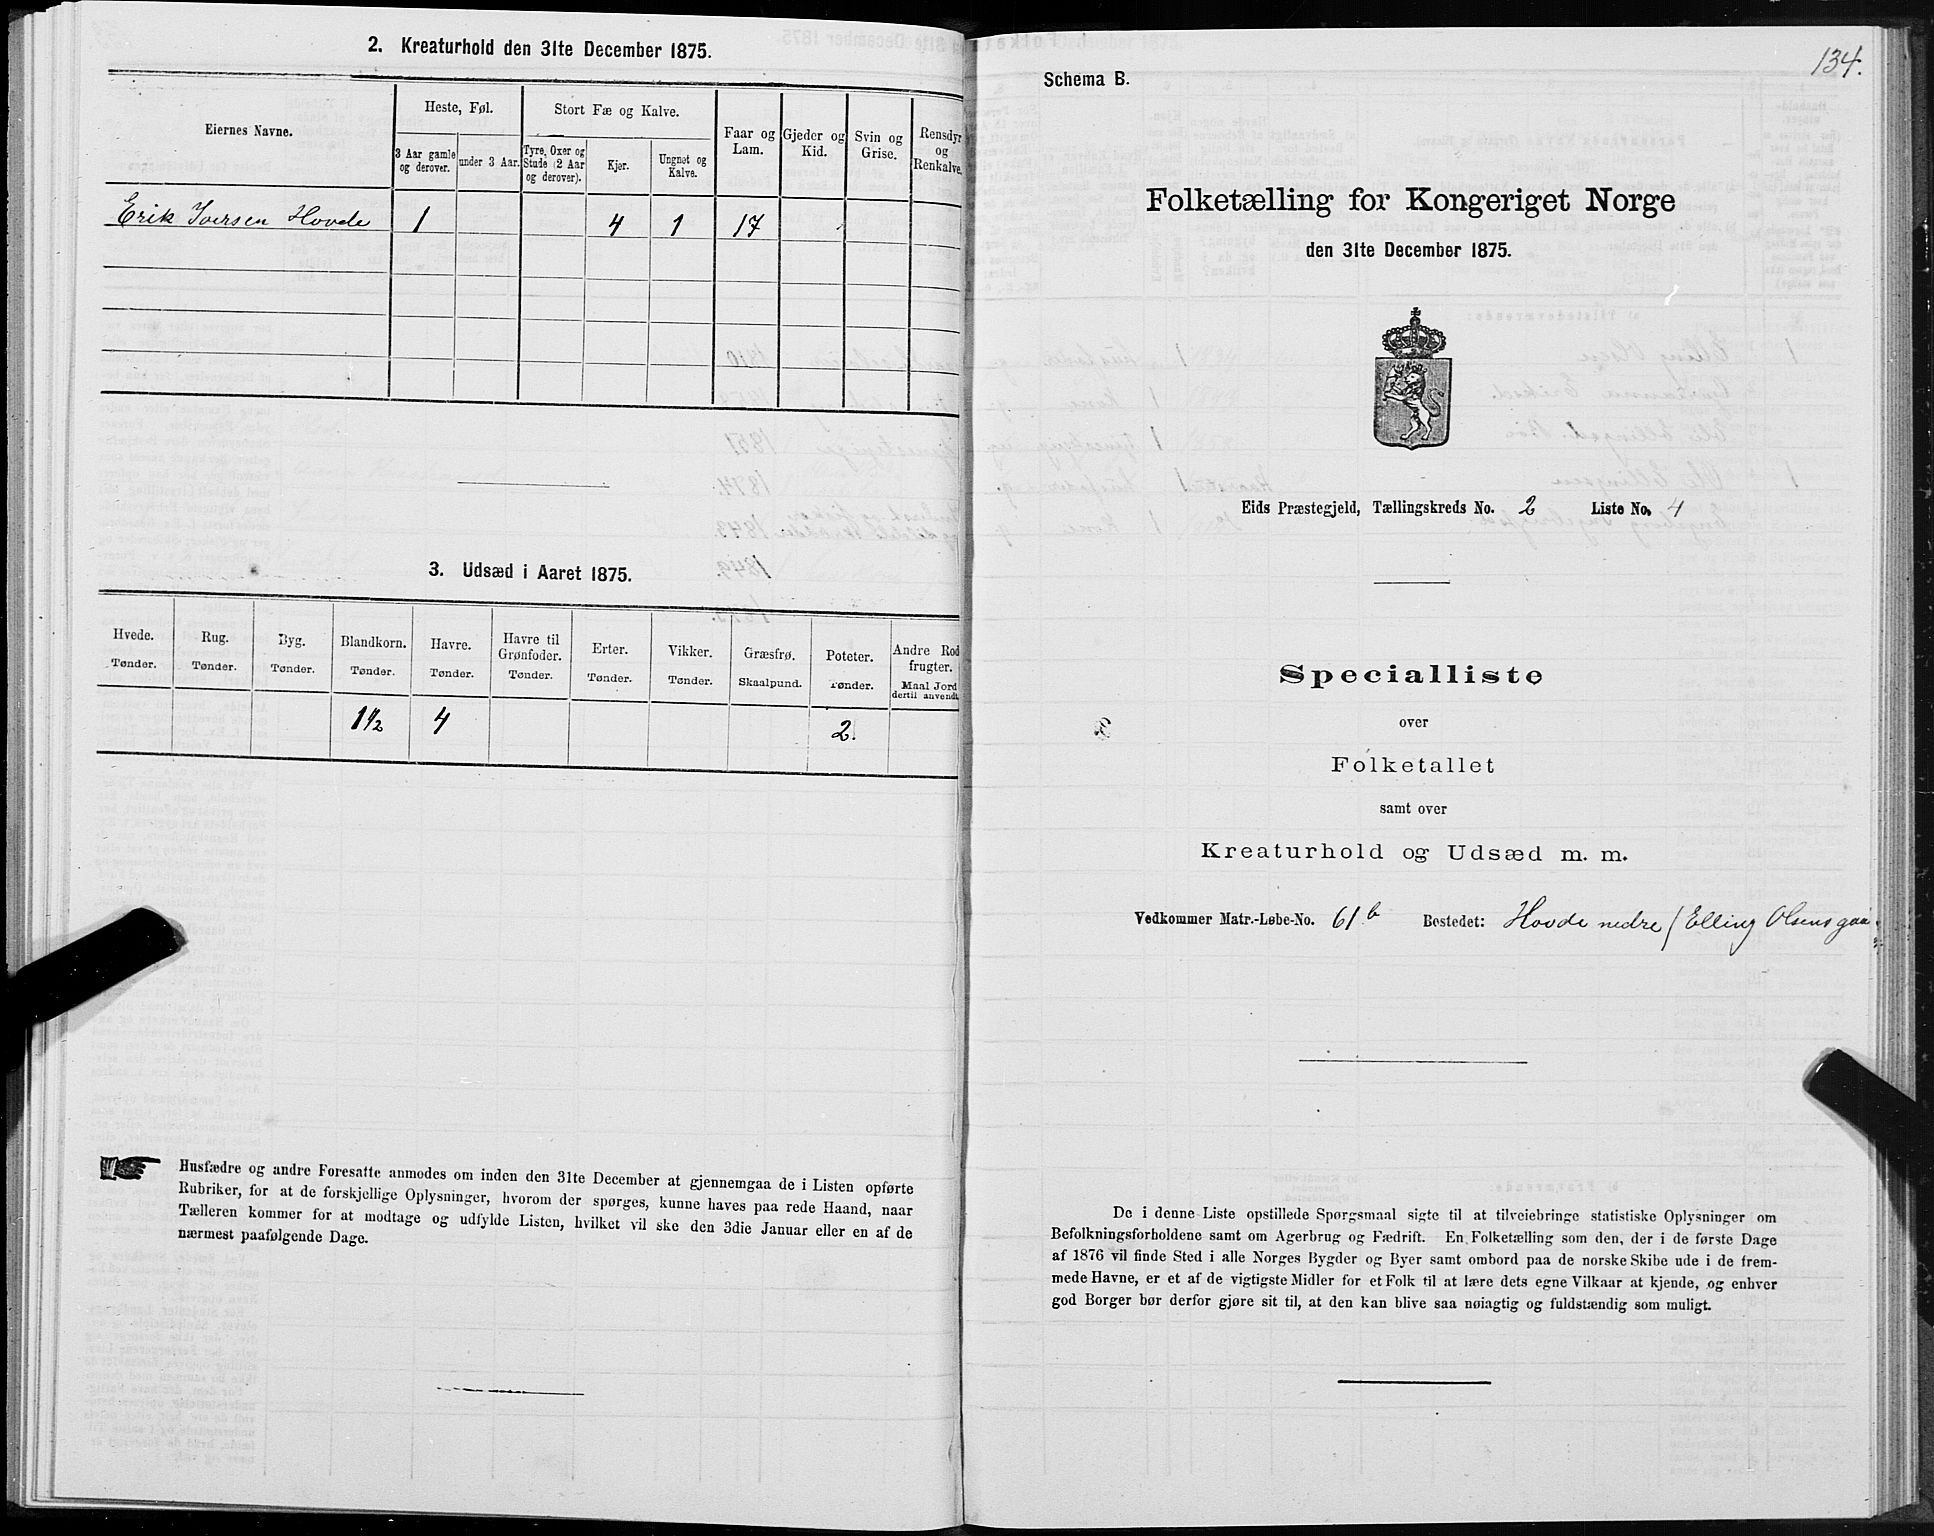 2. Kreaturhold den 31te December 1875.
Eiernes Navne.
Heste, Føl.
Stort Fæ og Kalve.
Faar og Lam.
Gjeder og Kid.
Svin og Grise.
Rensdyr og Renkalve.
3 Aar gamle og derover.
under 3 Aar.
Tyre, Oxer og Stude (2 Aar og derover).
Kjør.
Ungnøt og Kalve.
Erik Iversen Hovde 1 4 1 17
3. Udsæd i Aaret 1875.
Hvede. Rug. Byg. Blandkorn. Havre. Havre til Grønfoder. Erter. Vikker. Græsfrø. Poteter. Andre Rodfrugter.
Tønder. Tønder. Tønder. Tønder. Tønder. Tønder. Tønder. Tønder. Skaalpund. Tønder. Maal Jord dertil anvendt.
1 1/2 4 2.
Husfædre og andre Foresatte anmodes om inden den 31te December at gjennemgaa de i Listen opførte
Rubriker, for at de forskjellige Oplysninger, hvorom der spørges, kunne haves paa rede Haand, naar
Tælleren kommer for at modtage og udfylde Listen, hvilket vil ske den 3die Januar eller en af de
nærmest paafølgende Dage.
134.
Schema B.
Folketælling for Kongeriget Norge
den 31te December 1875.
Eids Præstegjeld, Tællingskreds No. 2 Liste No. 4
Specialliste
over
Folketallet
samt over
Kreaturhold og Udsæd m. m.
Vedkommer Matr.-Løbe-No. 61b Bostedet: Hovde nedre / Elling Olsens gaa
De i denne Liste opstillede Spørgsmaal sigte til at tilveiebringe statistiske Oplysninger om
Befolkningsforholdene samt om Agerbrug og Fædrift. En Folketælling som den, der i de første Dage
af 1876 vil finde Sted i alle Norges Bygder og Byer samt ombord paa de norske Skibe ude i de frem-
mede Havne, er et af de vigtigste Midler for et Folk til at lære dets egne Vilkaar at kjende, og enhver
god Borger bør derfor gjøre sit til, at den kan blive saa nøiagtig og fuldstændig som muligt.